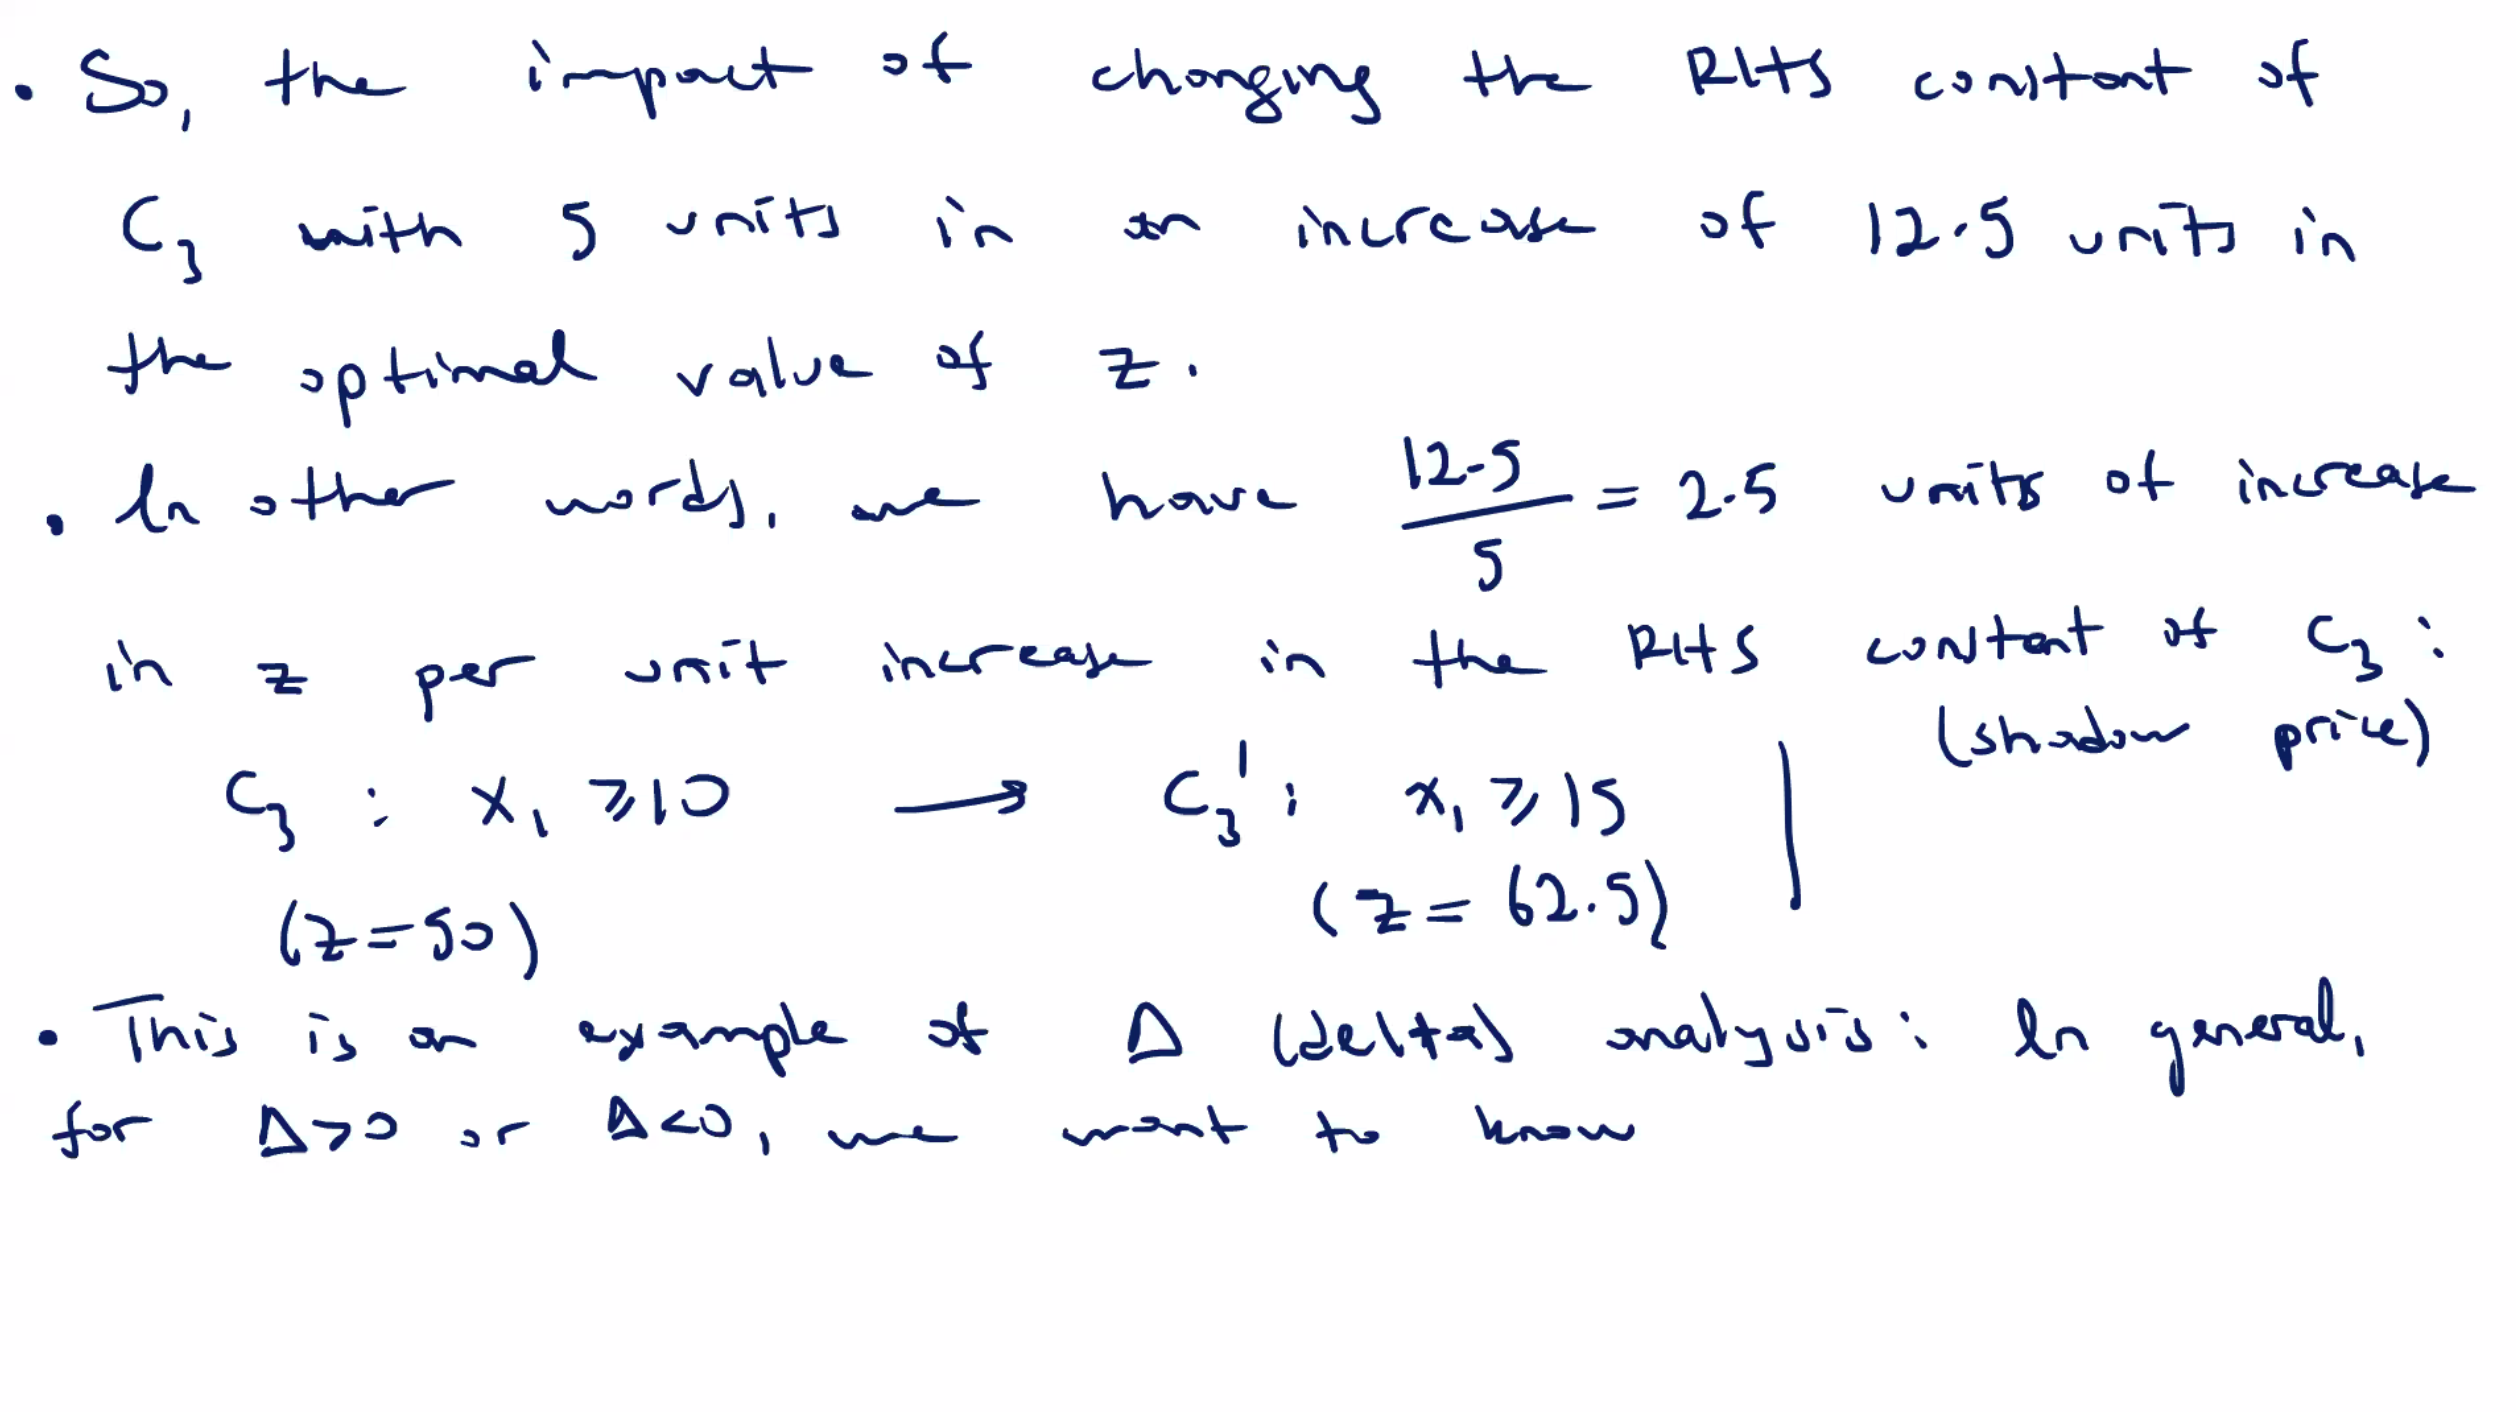 • So, the impact of changing the RHS constant of
C₃ with 5 units in an increase of 12.5 units in
the optimal value of z.
• In other words, we have 12.5/5 = 2.5 units of increase
in z per unit increase in the RHS constant of C₃ :
(shadow price)
C₃ : x₁ ≥ 10 → C₃' : x₁ ≥ 15
(z = 50) (z = 62.5)
• This is an example of Δ (delta) analysis: In general,
for Δ>0 or Δ<0, we want to know